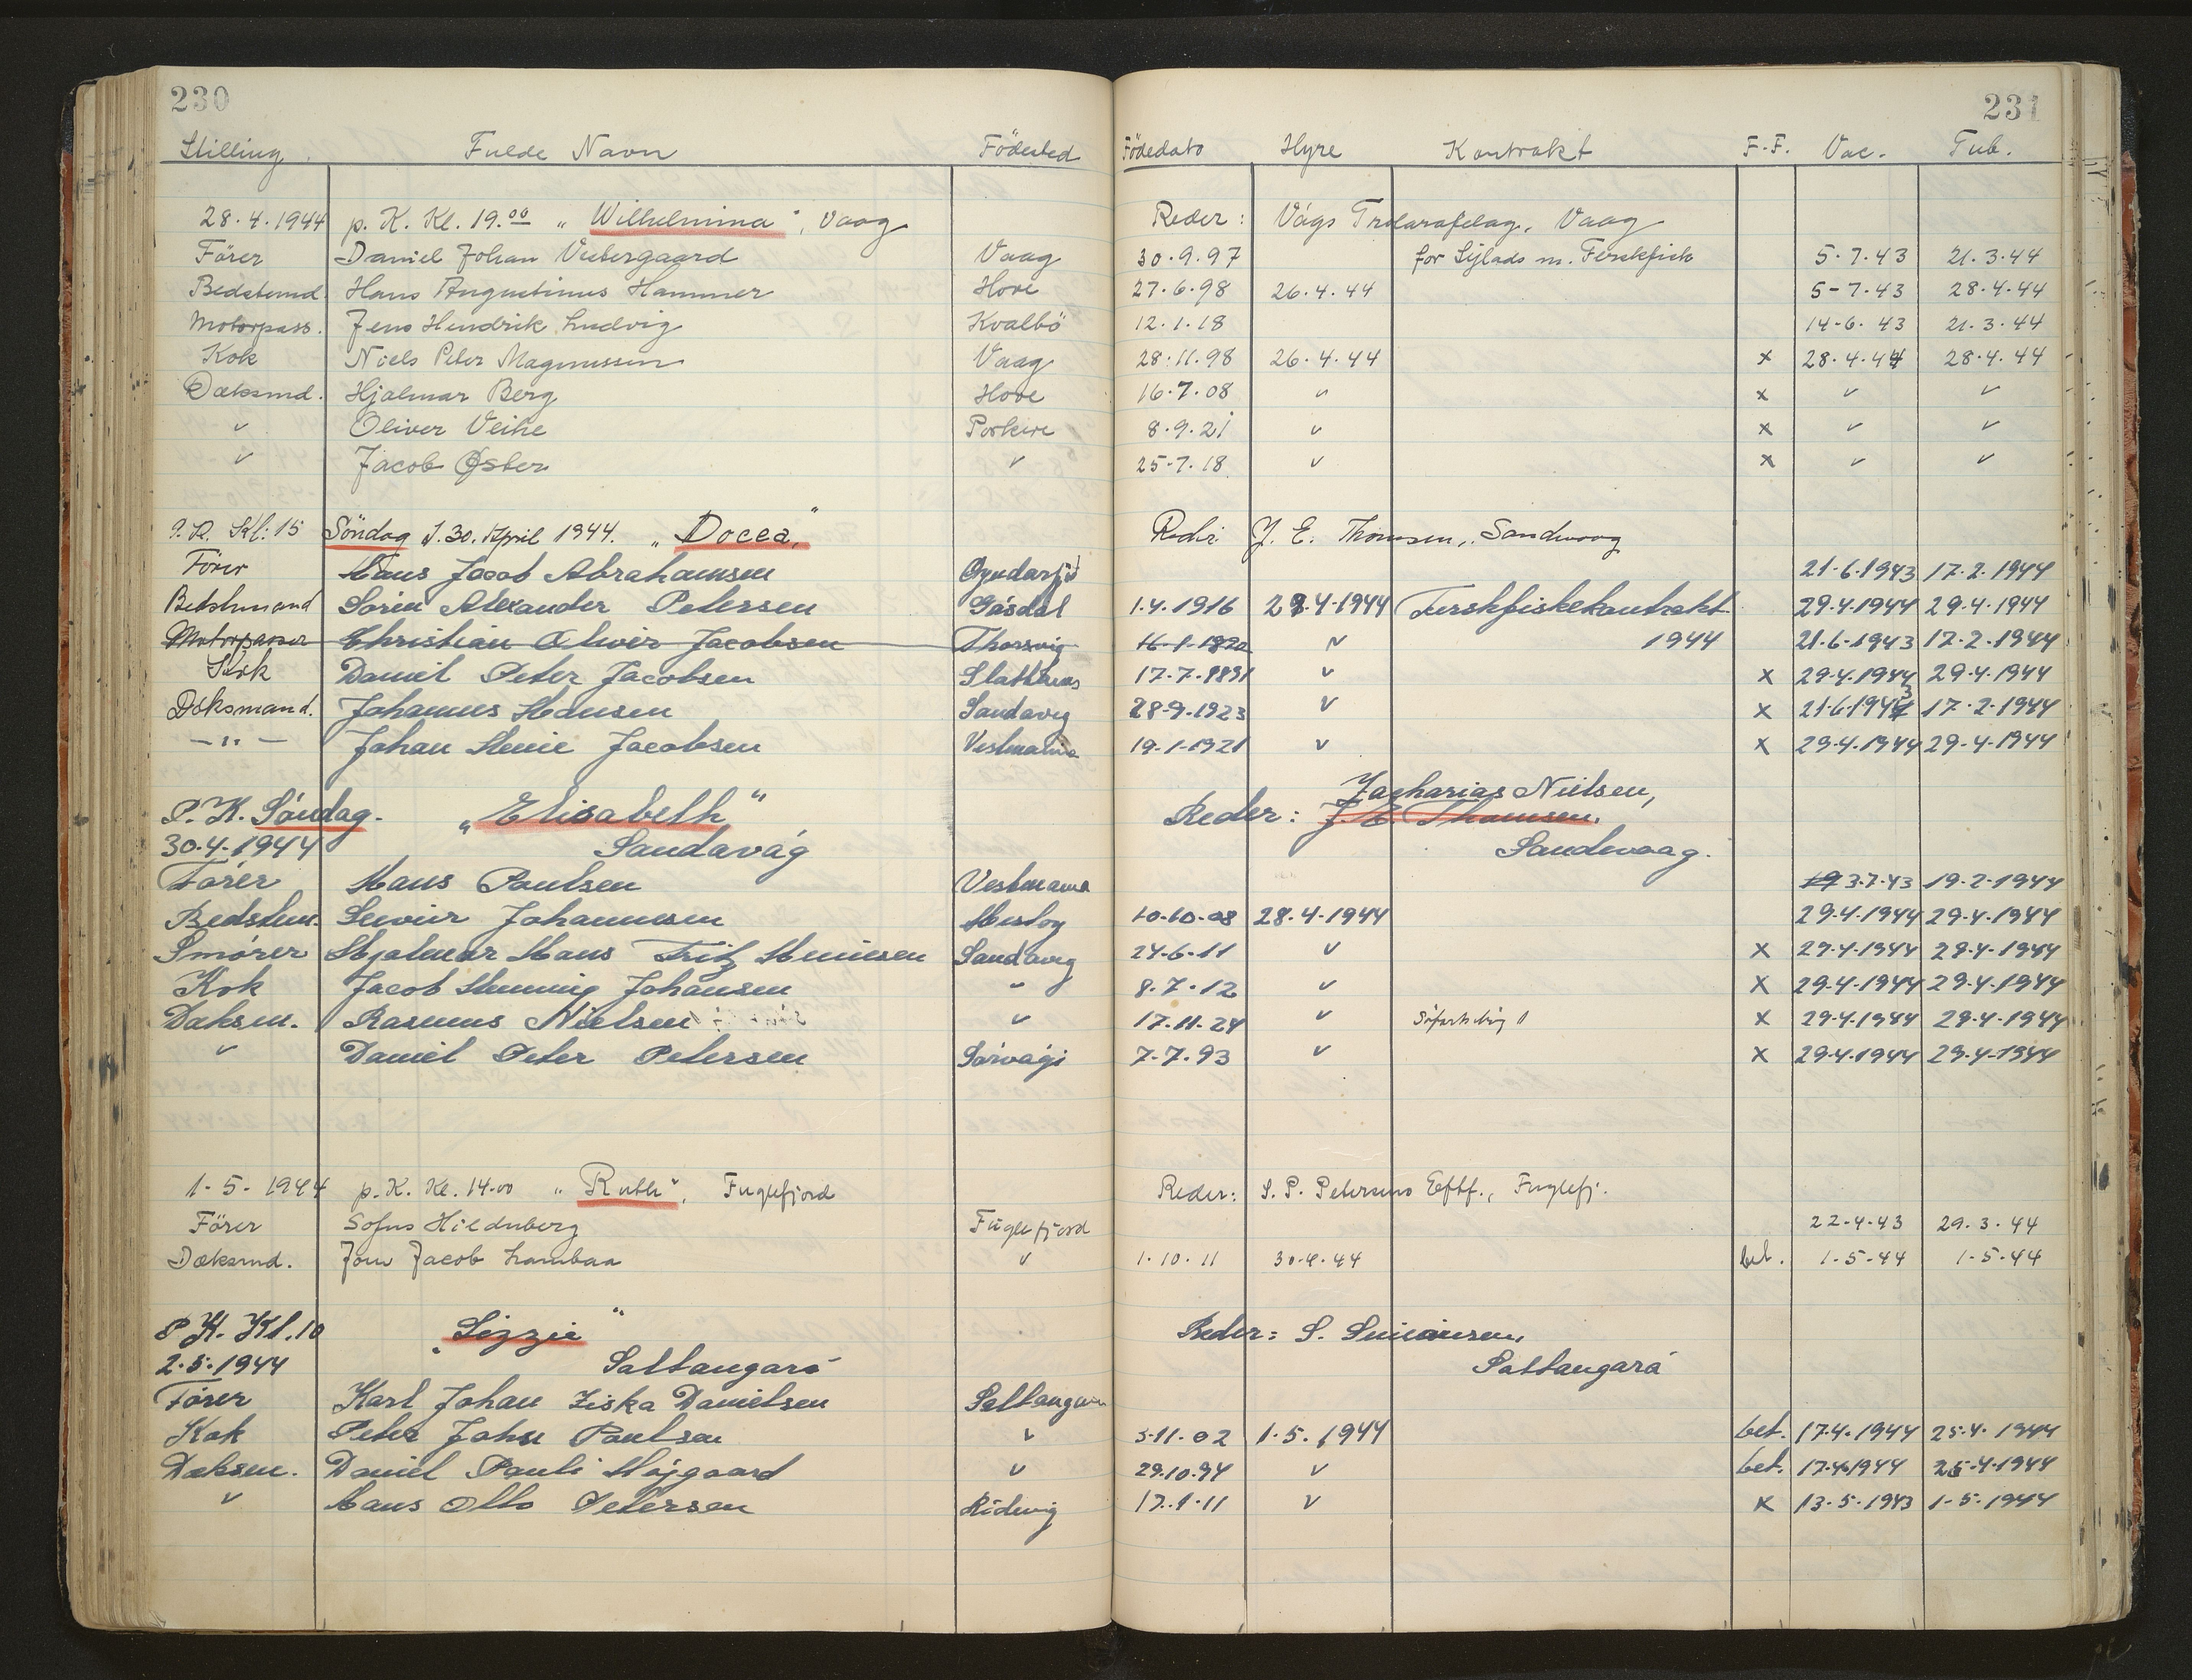 230 231
Stilling. Fulde Navn Födested Födedato Hyre Kontrakt F.-F. Vac. Tub.
28.4.1944 p. K. Kl. 19.00 "Wilhelmina", Vaag Reder: Vágs Trolarafelag, Vaag
Förer Daniel Johan Vestergaard Vaag 30.9.97 for Sejlads m. Ferskfisk 5.7.43 21.3.44
Bedstemd. Hans Augustinus Hammer Hove 27.6.98 26.4.44 5-7.43 28.4.44
Motorpass. Jens Hendrik Ludvig Kvalbö 12.1.18 14-6.43 21.3.44
Kok Niels Peter Magnussen Vaag 28.11.98 26.4.44 x 28.4.44 28.4.44
Dæksmd. Hjalmar Berg Hove 16.7.08 " x " "
" Oliver Veihe Porkere 8.9.21 " x " "
" Jacob Øster " 25-7.18 " x " "
P.K. Kl: 15 Söndag d. 30. April 1944. "Docea," Reder J. E. Thomsen, Sandevaag
Förer Hans Jacob Abrahamsen 21-6.1943 17.2.1944
Bedstemand Sörin Alexander Petersen Gásdal 1.4.1916 28.4-1944 Ferskfiskekontrakt 29.4.1944 29.4.1944
Motorpasser Christian Oliver Jacobsen Thorsvig 16-1-1820 " 1944 21-6.1943 17.2-1944
Kok Daniel Peter Jacobsen 17.7.1891 " x 29.4.1944 29.4.1944
Dæksmand. Johannes Hansen Sandavág 28-9.1923 " x 21.6.1943 17.2-1944
-"- Johan Henie Jacobsen Vestmanna 19-1-1921 " x 29.4.1944 29-4-1944
Zacharias Nielsen,
P. K. Söndag. "Elisabeth" Reder: J. E. Thomsen.
30.4-1944 Sandavág Sandevaag.
Förer Hans Poulsen Vestmanna 3.7.43 19.2-1944
Bedstem. Johannesen 10-10-08 28.4-1944 29.4.1944 29.4.1944
Smörer Hjalmar Hans Fritz Sandavág 24-6-11 " x 29.4.1944 29.4-1944
Kok Jacob Henning Johansen " 8.7.12 " x 29.4.1944 29.4.1944
Dæksm. Rasmus Nielsen " 17.11.24 " x 29.4.1944 29.4-1944
" Daniel Peter Petersen Sörvági 7-7.93 " x 29.4.1944 29.4-1944
1-5-1944 p. K. Kl. 14.00 "Ruth", Fuglefjord Reder: S. P. Petersens Eftf., Fuglefj.
Förer Sofus Hildenberg Fuglefjord 22-4-43 29.3.44
Dæksmd. Jens Jacob Lambaa " 1.10.11 30.4.44 bet. 1-5-44 1-5-44
P. K. Kl. 10 "Lizzie" Reder: S. Simonsen,
2.5.1944 Saltangará Saltangará
Förer Karl Johan Ziska Danielsen Saltangara
Kok Peter John Poulsen " 3-11-02 1.5.1944 bet. 17.4.1944 25.4.1944
Dæksm. Daniel Pauli Højgaard " 29.10.94 " bet. 17.4.1944 25.4.1944
" Hans Otto Petersen Ridevig 17.1.11 " x 13.5.1943 1-5.1944